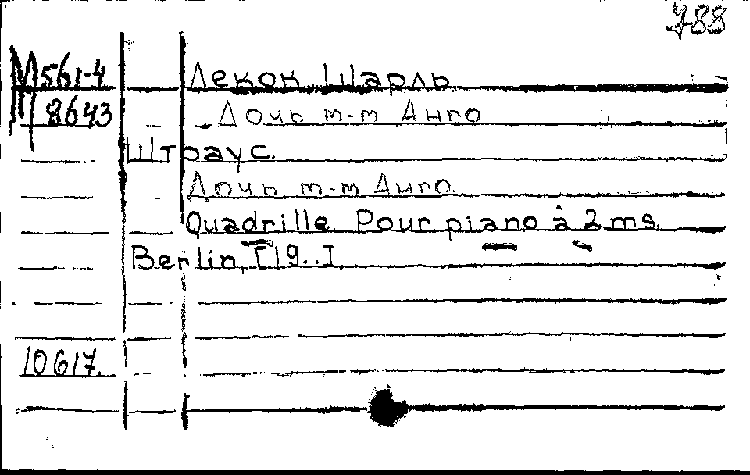 788
М561-4
8643
Лекок Шарль
Дочь m-m Анго
Штраус.
Дочь m-m Анго.
Quadrille Pour piano à 2 ms.
Berlin, [19..]
10617.